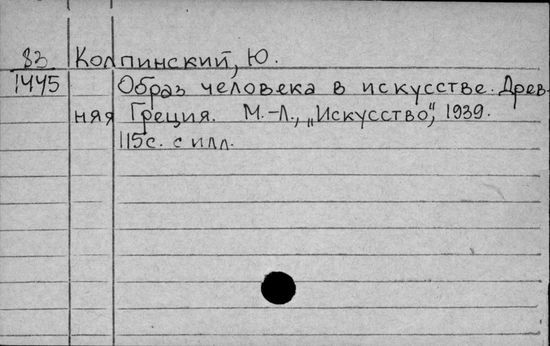 83 Колпинский, Ю.
1445 Образ человека в искусстве. Древ-
няя Греция. М.-Л., „Искусство", 1939.
115с. с илл.